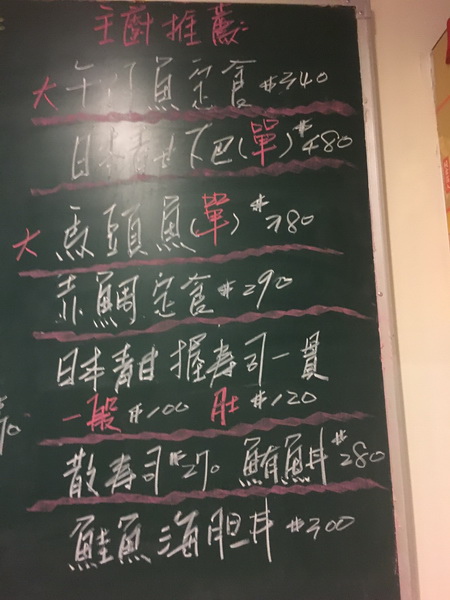 主廚推薦
大午仔魚定食 $340
日本青甘下巴(單) $480
大馬頭魚(單) $380
赤鯛定食 $290
日本青甘握寿司一貫
一般 $100 肚 $120
散寿司 $270 鮪魚丼 $280
鮭魚海胆丼 $300